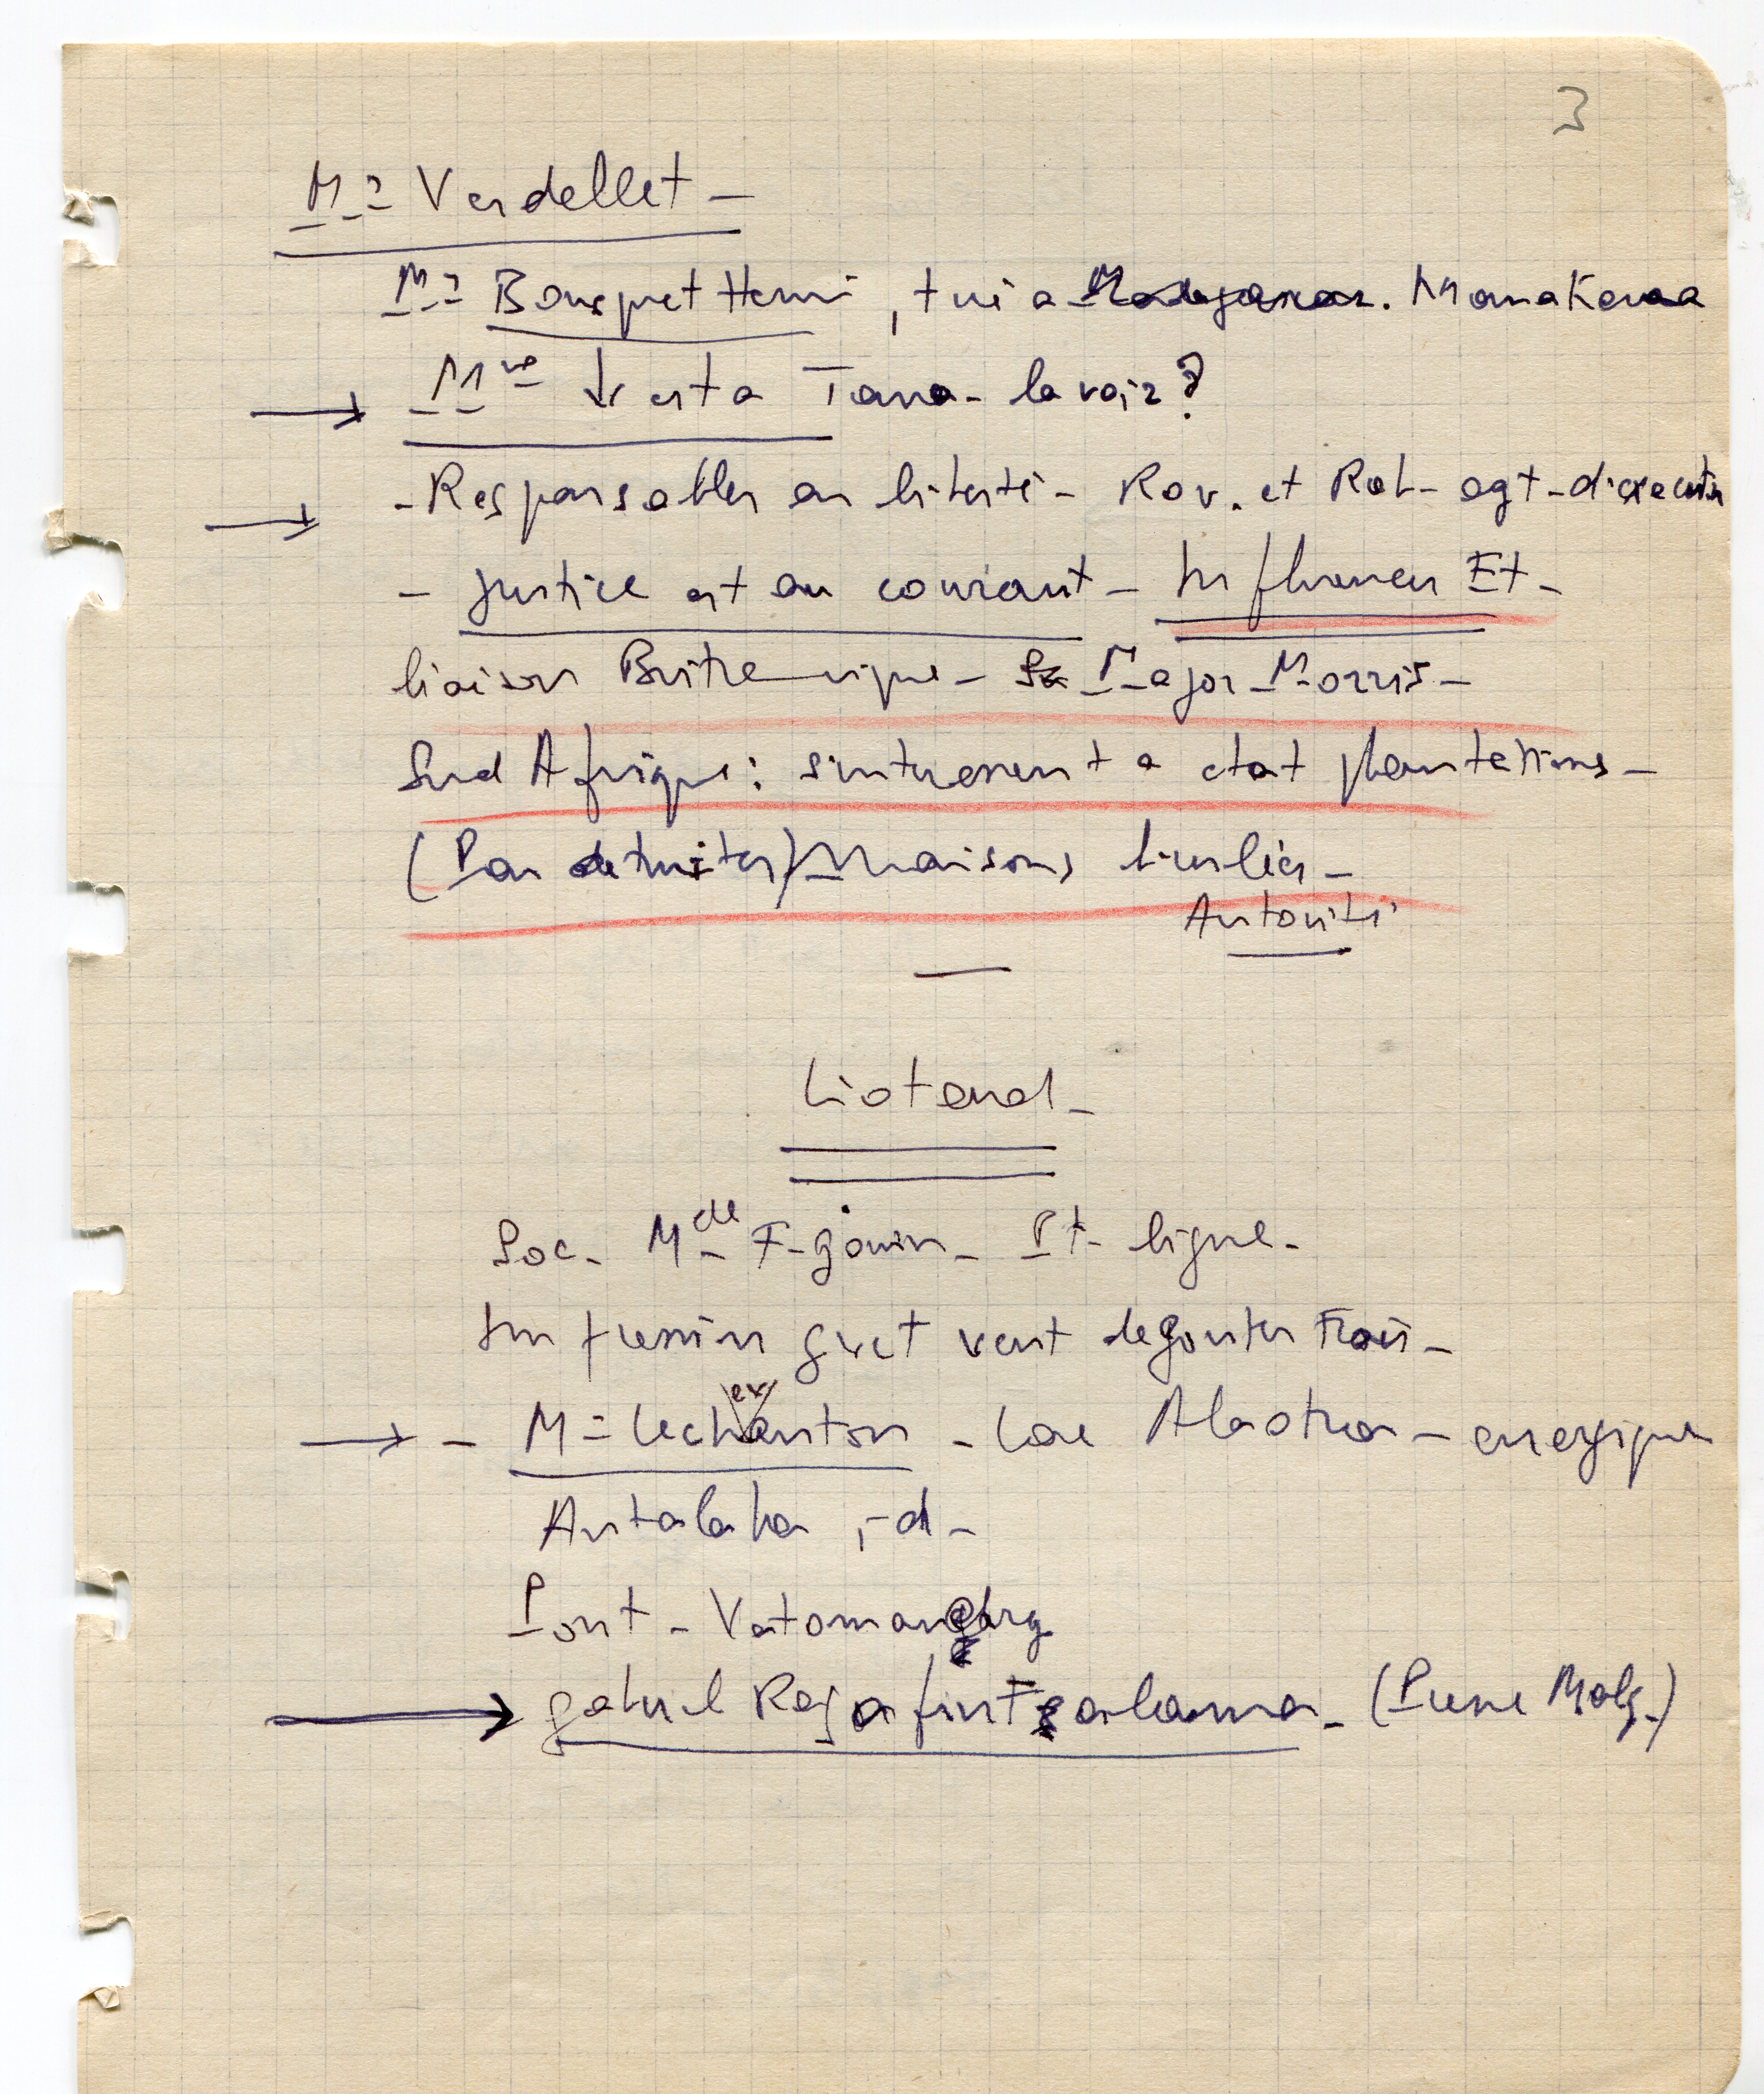 3
Mr Verdellet -
Mr Bousquet Henri, tué a Madagascar. Manakara
Mme V est a Tana - la voir ?
- Responsables en liberté - Rav. et Rab - agt - d'execution
- Justice est au courant - Influences Et -
liaison Britannique - Major Morris -
Sud Afrique : s'interessent a etat plantations -
(Pas detruites) Maisons brulées -
Autorité
Liotard -
Soc. Mde F. Gouin - Pt ligne -
Impression gvet veut degouter Frçais -
- Mr Lechenton - Lac Alaotra - energique
ex
Antalaha, id -
Pont - Vatomandry
Gabriel Razafintsalama - (Presse Malg.)